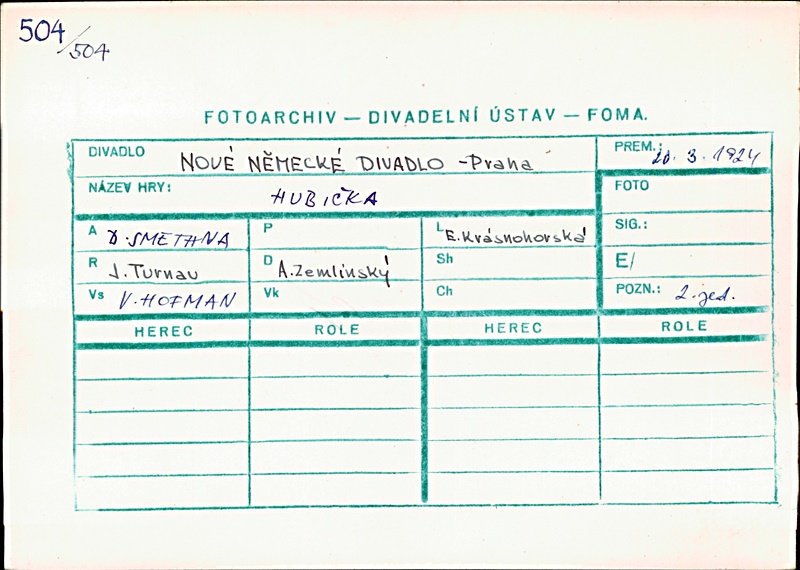 504/504
FOTOARCHIV — DIVADELNÍ ÚSTAV — FOMA.
DIVADLO NOVÉ NĚMECKÉ DIVADLO - Praha PREM.: 20. 3. 1924
NÁZEV HRY: HUBIČKA FOTO
A B. SMETANA P L E. Krásnohorská SIG.:
R J. Turnau D A. Zemlinský Sh E/
Vs V. HOFMAN Vk Ch POZN.: 2. jed.
HEREC ROLE HEREC ROLE